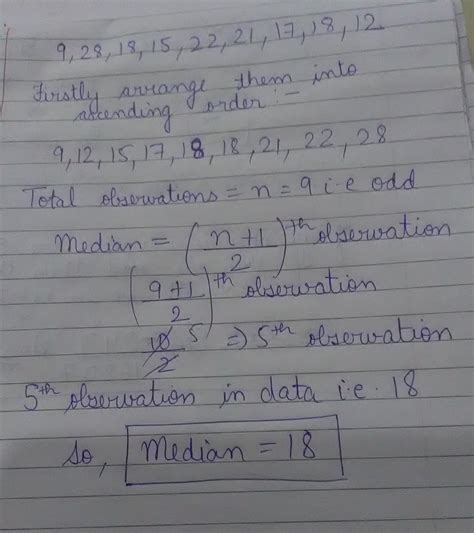 9, 28, 18, 15, 22, 21, 17, 18, 12
Firstly arrange them into
ascending order :-
9, 12, 15, 17, 18, 18, 21, 22, 28
Total observations = n = 9 i.e odd
Median = (n+1/2)th observation
(9+1/2)th observation
10/2 5 => 5th observation
5th observation in data i.e. 18
So, Median = 18